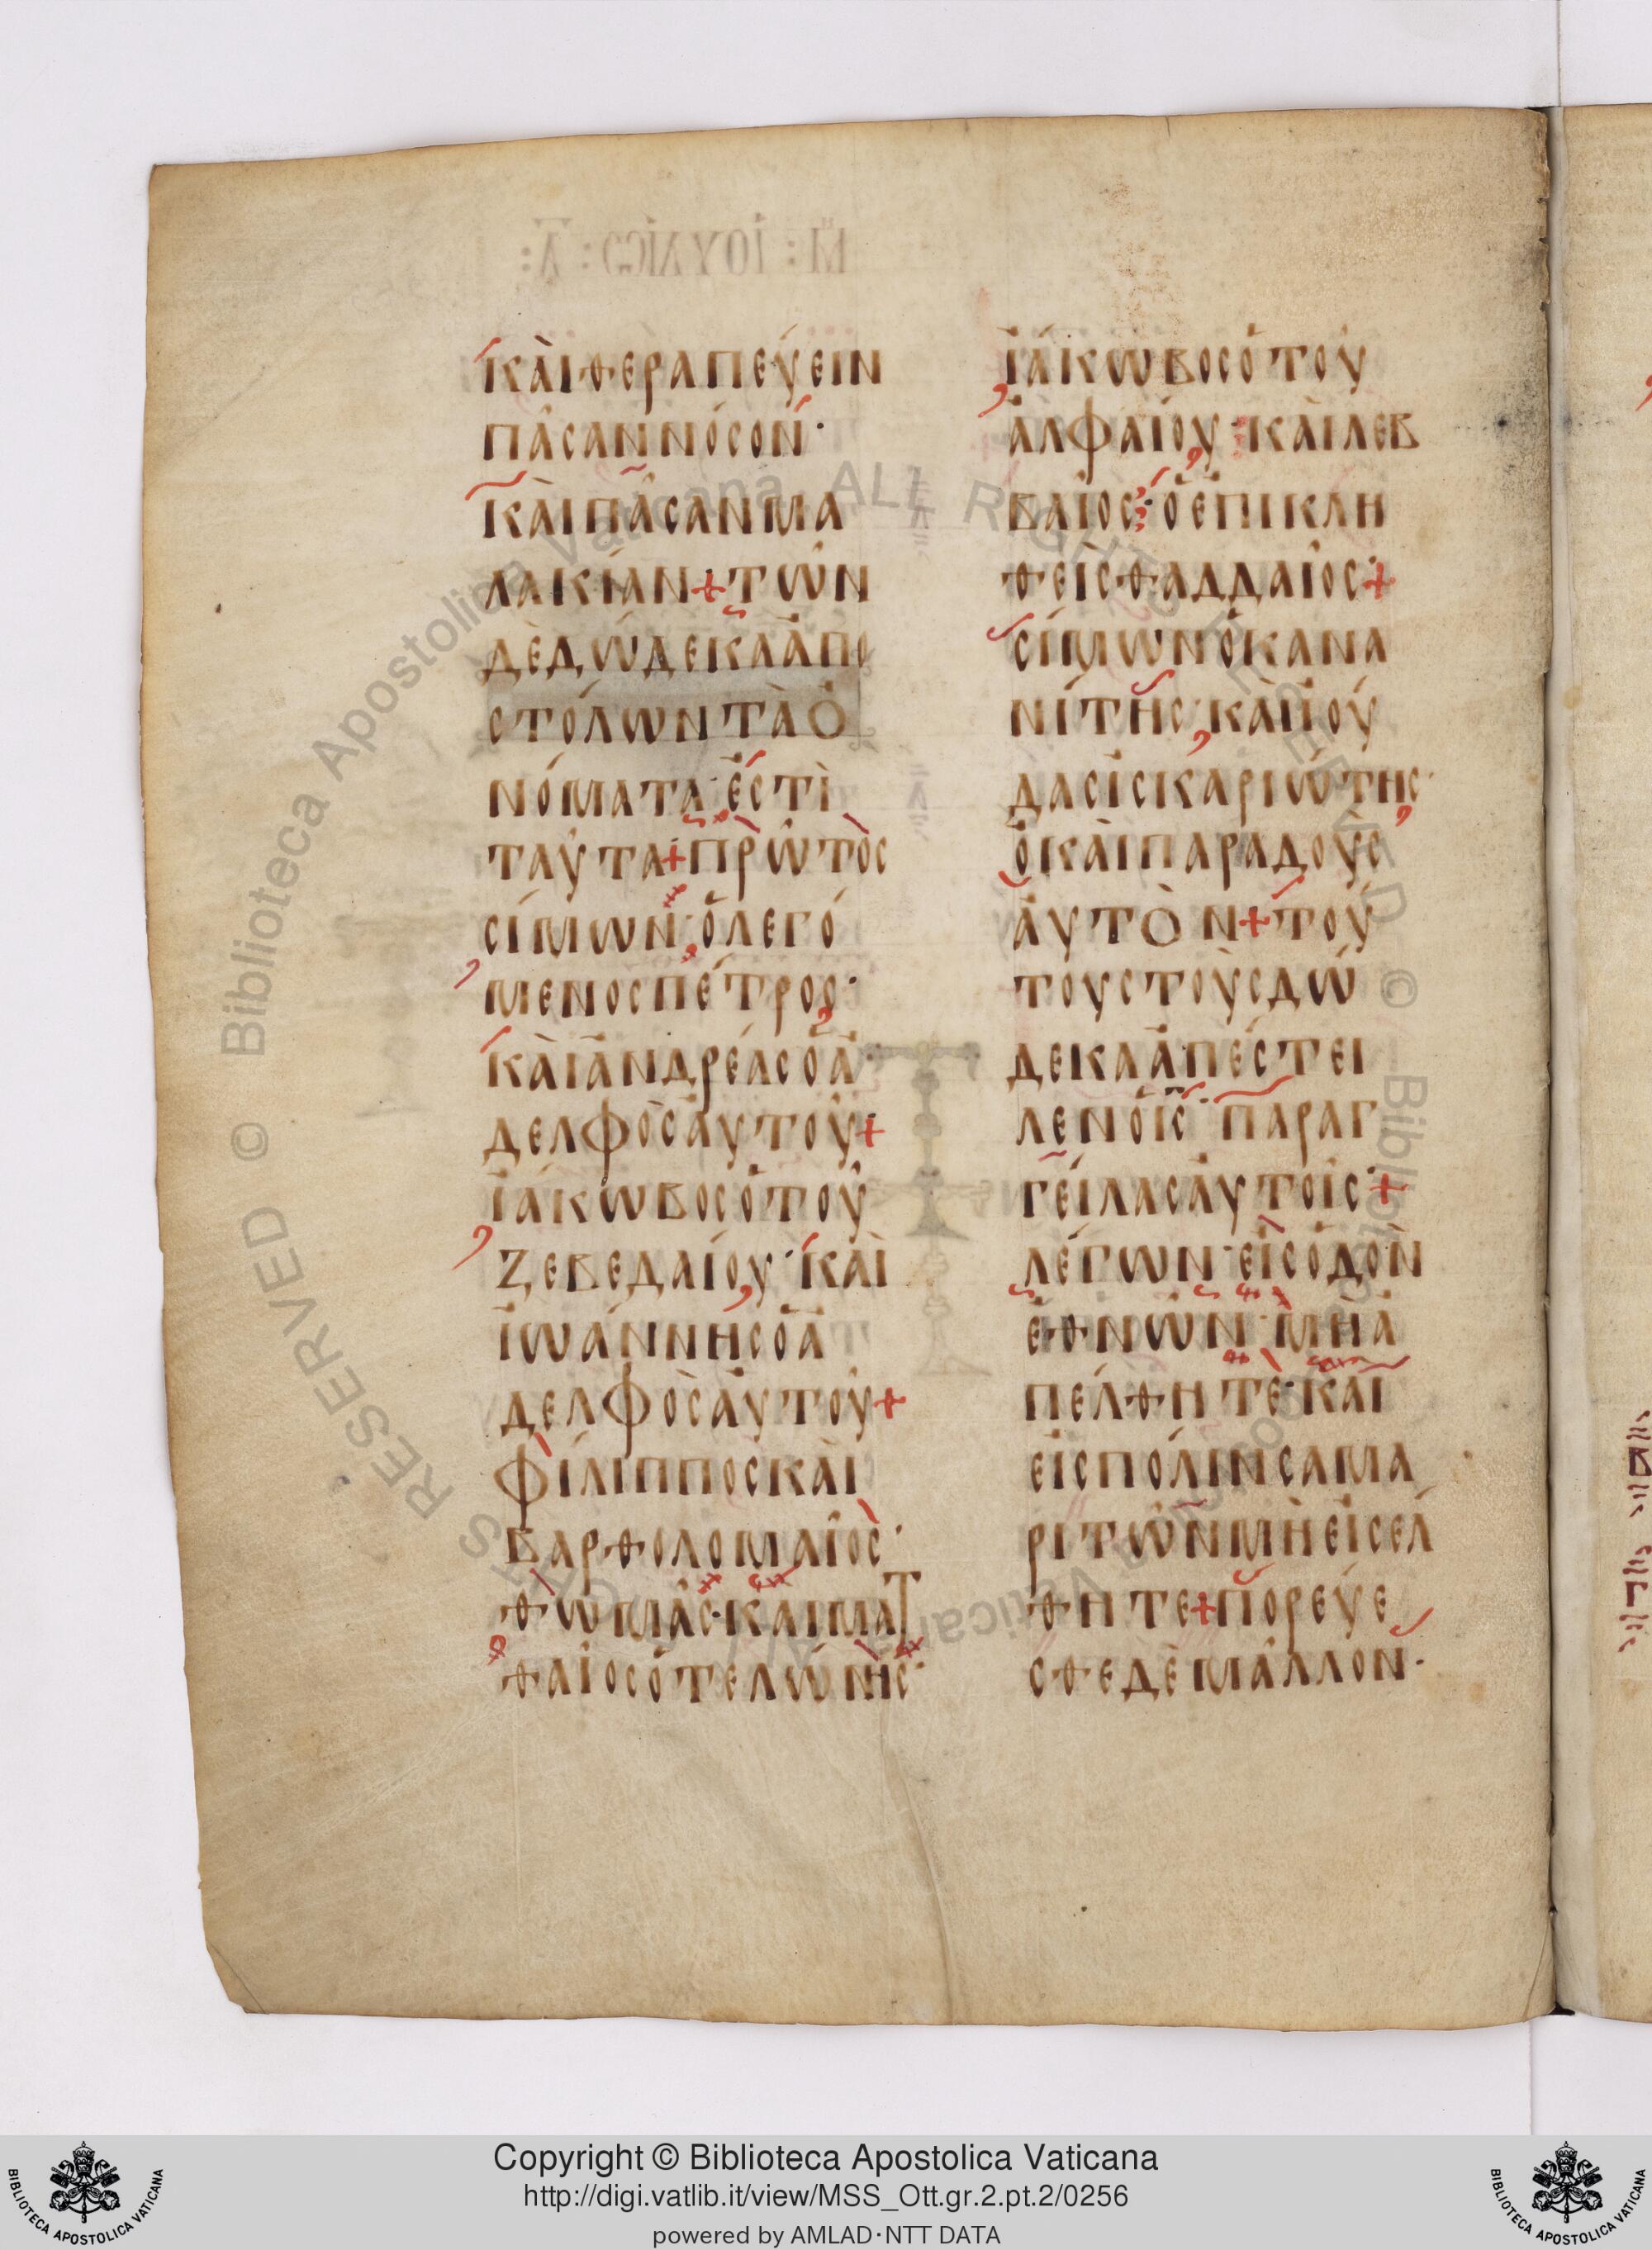 ΚΑΙΘΕΡΑΠΕΥΕΙΝ
ΠΑΣΑΝΝΟΣΟΝ·
ΚΑΙΠΑΣΑΝΜΑ
ΛΑΚΙΑΝ+ΤΩΝ
ΔΕΔΩΔΕΚΑΑΠΟ
ΣΤΟΛΩΝΤΑΟ
ΝΟΜΑΤΑ·ΕΣΤΙ
ΤΑΥΤΑ+ΠΡΩΤΟΣ
ΣΙΜΩΝ·ΟΛΕΓΟ
ΜΕΝΟΣΠΕΤΡΟΣ·
ΚΑΙΑΝΔΡΕΑΣΟΑ
ΔΕΛΦΟΣΑΥΤΟΥ+
ΙΑΚΩΒΟΣΟΤΟΥ
ΖΕΒΕΔΑΙΟΥ·ΚΑΙ
ΙΩΑΝΝΗΣΟΑ
ΔΕΛΦΟΣΑΥΤΟΥ+
ΦΙΛΙΠΠΟΣΚΑΙ
ΒΑΡΘΟΛΟΜΑΙΟΣ·
ΘΩΜΑΣ·ΚΑΙΜΑΤ
ΘΑΙΟΣΟΤΕΛΩΝΗΣ·
ΙΑΚΩΒΟΣΟΤΟΥ
ΑΛΦΑΙΟΥ·ΚΑΙΛΕΒ
ΒΑΙΟΣ·ΟΕΠΙΚΛΗ
ΘΕΙΣΘΑΔΔΑΙΟΣ·+
ΣΙΜΩΝΟΚΑΝΑ
ΝΙΤΗΣ·ΚΑΙΙΟΥ
ΔΑΣΙΣΚΑΡΙΩΤΗΣ·
ΟΚΑΙΠΑΡΑΔΟΥΣ
ΑΥΤΟΝ+ΤΟΥ
ΤΟΥΣΤΟΥΣΔΩ
ΔΕΚΑΑΠΕΣΤΕΙ
ΛΕΝΟΙΣ·ΠΑΡΑΓ
ΓΕΙΛΑΣΑΥΤΟΙΣ·+
ΛΕΓΩΝ·ΕΙΣΟΔΟΝ
ΕΘΝΩΝ·ΜΗΑ
ΠΕΛΘΗΤΕ·ΚΑΙ
ΕΙΣΠΟΛΙΝΣΑΜΑ
ΡΙΤΩΝΜΗΕΙΣΕΛ
ΘΗΤΕ+ΠΟΡΕΥΕ
ΣΘΕΔΕΜΑΛΛΟΝ·
Copyright © Biblioteca Apostolica Vaticana
http://digi.vatlib.it/view/MSS_Ott.gr.2.pt.2/0256
powered by AMLAD·NTT DATA
BIBLIOTECA APOSTOLICA VATICANA
BIBLIOTECA APOSTOLICA VATICANA